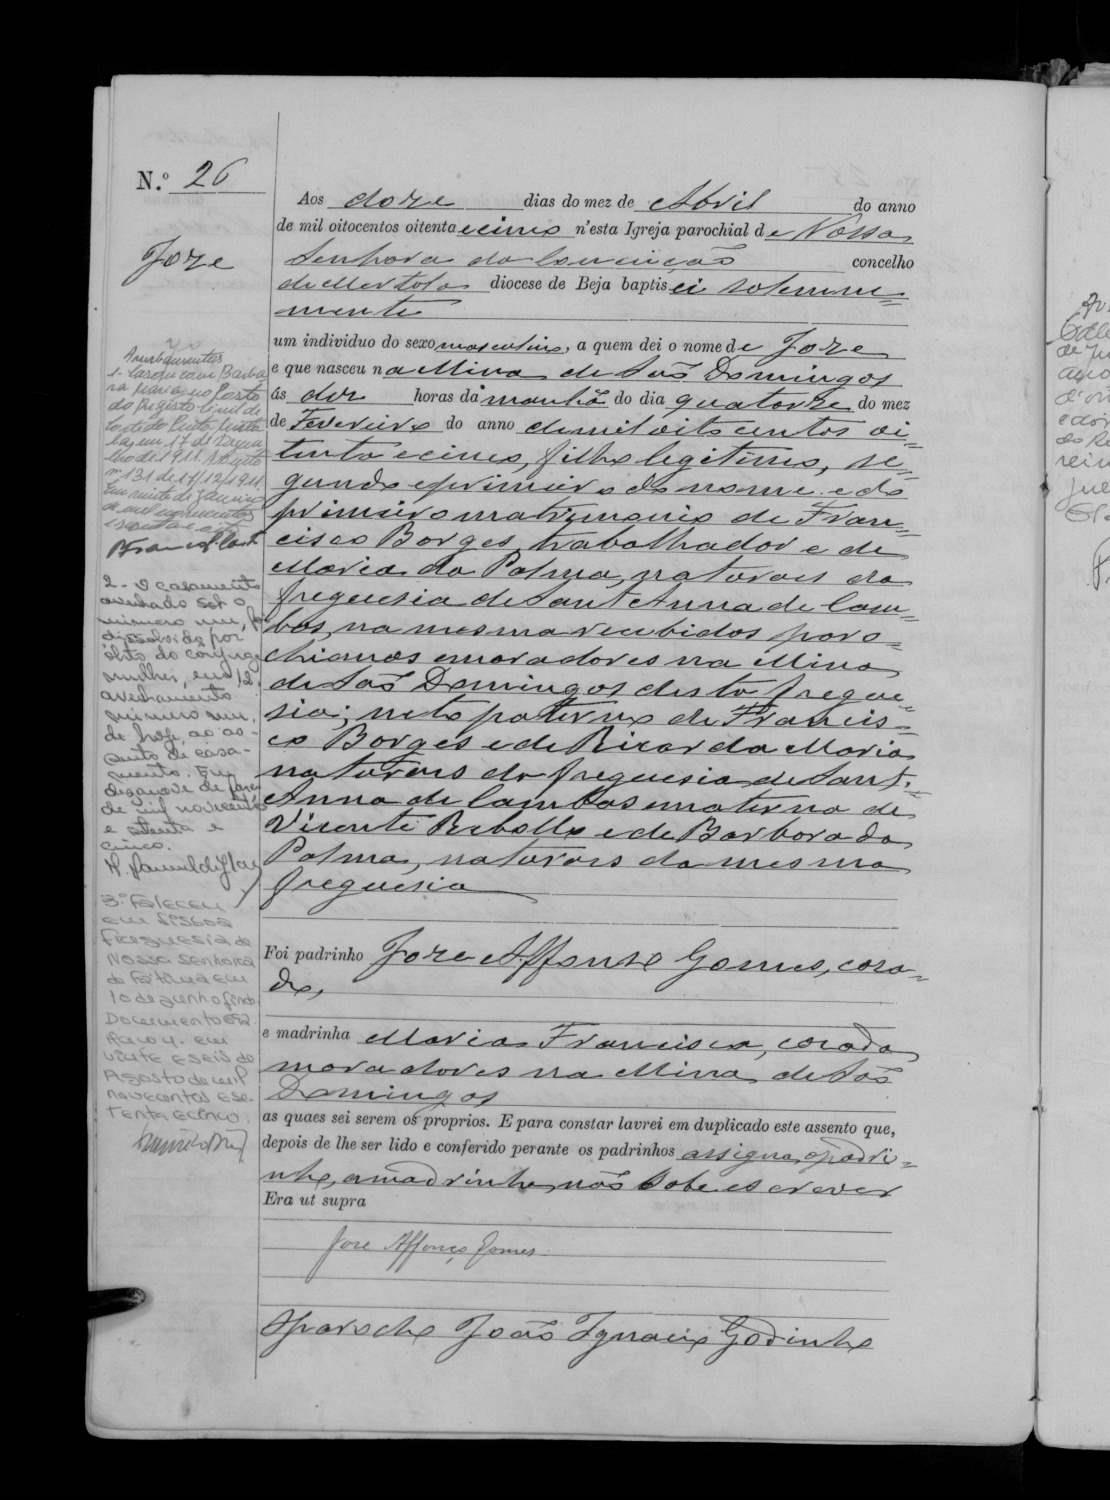 N.º 26
Joze
Aos doze dias do mez de Abril do anno
de mil oitocentos oitenta e cinco n'esta Igreja parochial de Nossa
Senhora da Conceição concelho
de Mertola diocese de Beja baptisei solemne=
mente
um individuo do sexo masculino, a quem dei o nome de Joze
e que nasceu na Mina de São Domingos
ás dez horas da manhã do dia quatorze do mez
de Fevereiro do anno de mil oito centos oi=
tenta e cinco, filho legitimo, se=
gundo e primeiro do nome e do
primeiro matrimonio de Fran=
cisco Borges, trabalhador e de
Maria da Palma, naturaes da
freguesia de Sant Anna de Cam=
bas, na mesma recebidos paro=
chianos e moradores na Mina
de São Domingos desta fregue=
sia; neto paterno de Francis=
co Borges e de Ricarda Maria
naturaes da freguesia de Sant'=
Anna de Cambas e materno de
Vicente Rebollo e de Barbora da
Palma, naturaes da mesma
freguesia
Foi padrinho Joze Affonso Gomes, casa=
do,
e madrinha Maria Francisca, casada
moradores na Mina de São
Domingos
as quaes sei serem os proprios. E para constar lavrei em duplicado este assento que,
depois de lhe ser lido e conferido perante os padrinhos assigna o padri=
nho, a madrinha não sabe escrever
Era ut supra
Joze Affonço Gomes
O parocho João Ignacio Godinho
casou com Barbo
ra Maria no Posto
do Registo Civil de
lho de 1911. Assento
nº 131 de 17/12/1911.
Em vinte de Janeiro
de mil novecentos
e setenta e
2 - O casamento
averbado sob o
numero um, foi
dissolvido por
óbito do cônjuge
mulher,
averbamento
numero um,
de hoje, ao as-
sento de casa-
mento. Em
dezanove de
de mil novecentos
e setenta e
cinco.
3.º Faleceu
em Lisboa
Freguesia de
Nossa Senhora
de Fátima em
10 de Junho findo
Documento 692
Maço 4. em
vinte e seis de
Agosto de mil
novecentos e se
tenta e cinco.